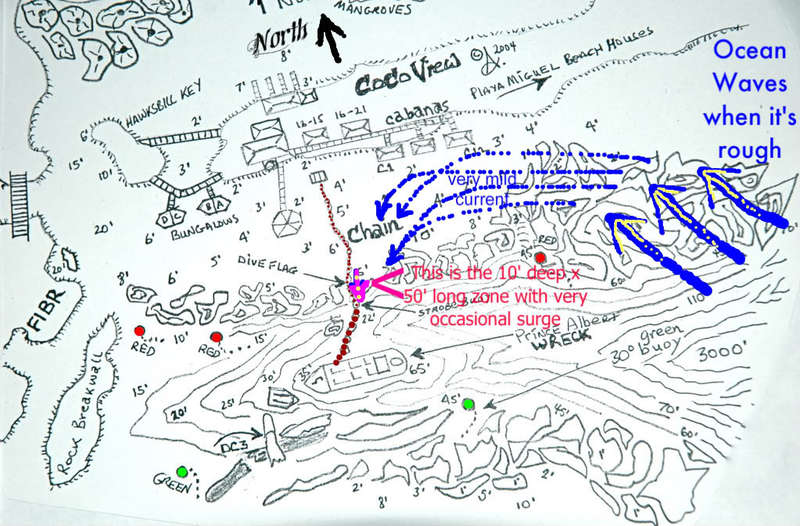 North
MANGROVES
North
8'
CoCo View
© 2004
PLAYA MIGUEL BEACH HOUSES
Ocean
Waves
when it's
rough
HAWKSBILL KEY
7'
3'
16-15
16-21
cabanas
6'
2'
3'
15'
10'
2'
4'
C1
2'
4'
4'
very mild
current
BUNGALOWS
D
C
B
A
20'
6'
5'
Chain
10'
3'
45'
RED
DIVE FLAG
This is the 10' deep x
50' long zone with very
occasional surge
8'
6'
5'
15'
22'
110'
FIBR
RED
RED
15'
Prince Albert
WRECK
30° green
buoy
3000'
35'
65'
15'
20'
25'
30'
45'
45'
70'
60'
ROCK BREAKWALL
DC3
GREEN
2'
8'
3'
1'
5'
1'
10'
1'